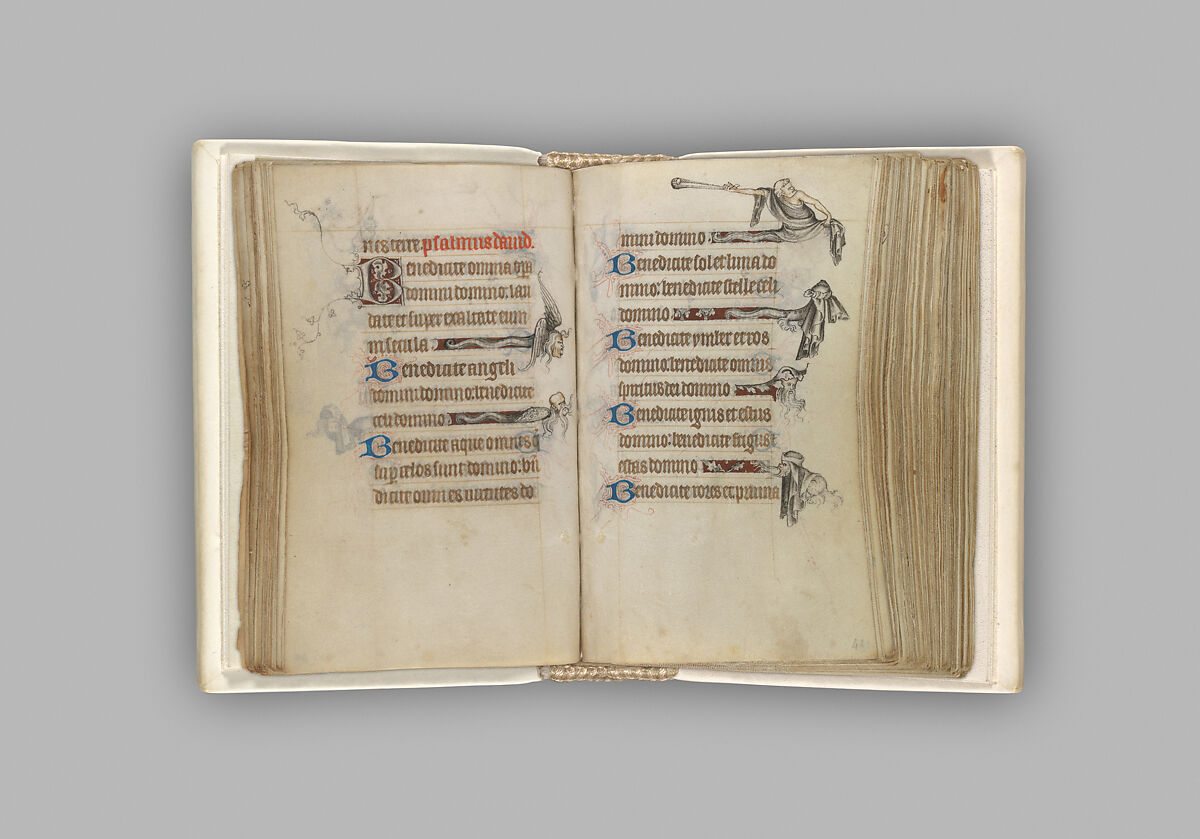 nes terre. psalmus dauid.
Benedicite omnia opa
domini domino: lau
date et super exaltate eum
in secula
Benedicite angeli
domini domino: benedicite
celi domino
Benedicite aque omnes q
sup celos sunt domino: bn
dicite omnes uirtutes do
mini domino
Benedicite sol et luna do
mino: benedicite stelle celi
domino
Benedicite ymber et ros
domino: benedicite omnis
spiritus dei domino
Benedicite ignis et estus
domino: benedicite frigus et
estas domino
Benedicite rores et pruina